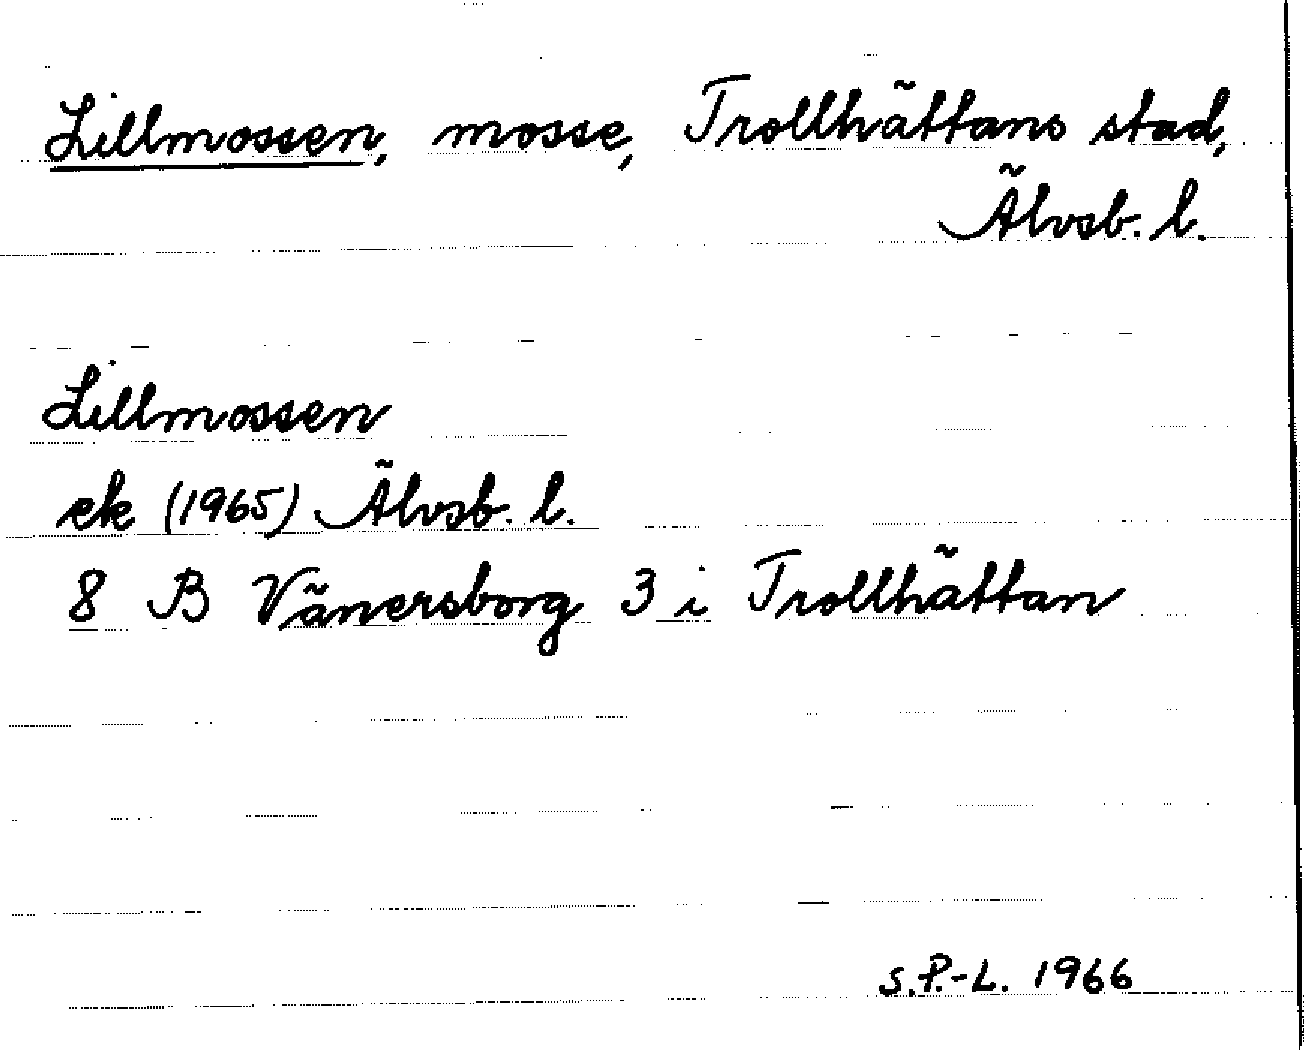 Lillmossen, mosse, Trollhättans stad,
Älvsb. l.
Lillmossen
ek (1965) Älvsb. l.
8 B Vänersborg 3 i Trollhättan
S.P.-L. 1966